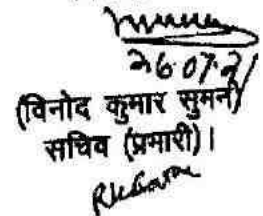 26.07.21
(विनोद कुमार सुमन)
सचिव (प्रभारी)।